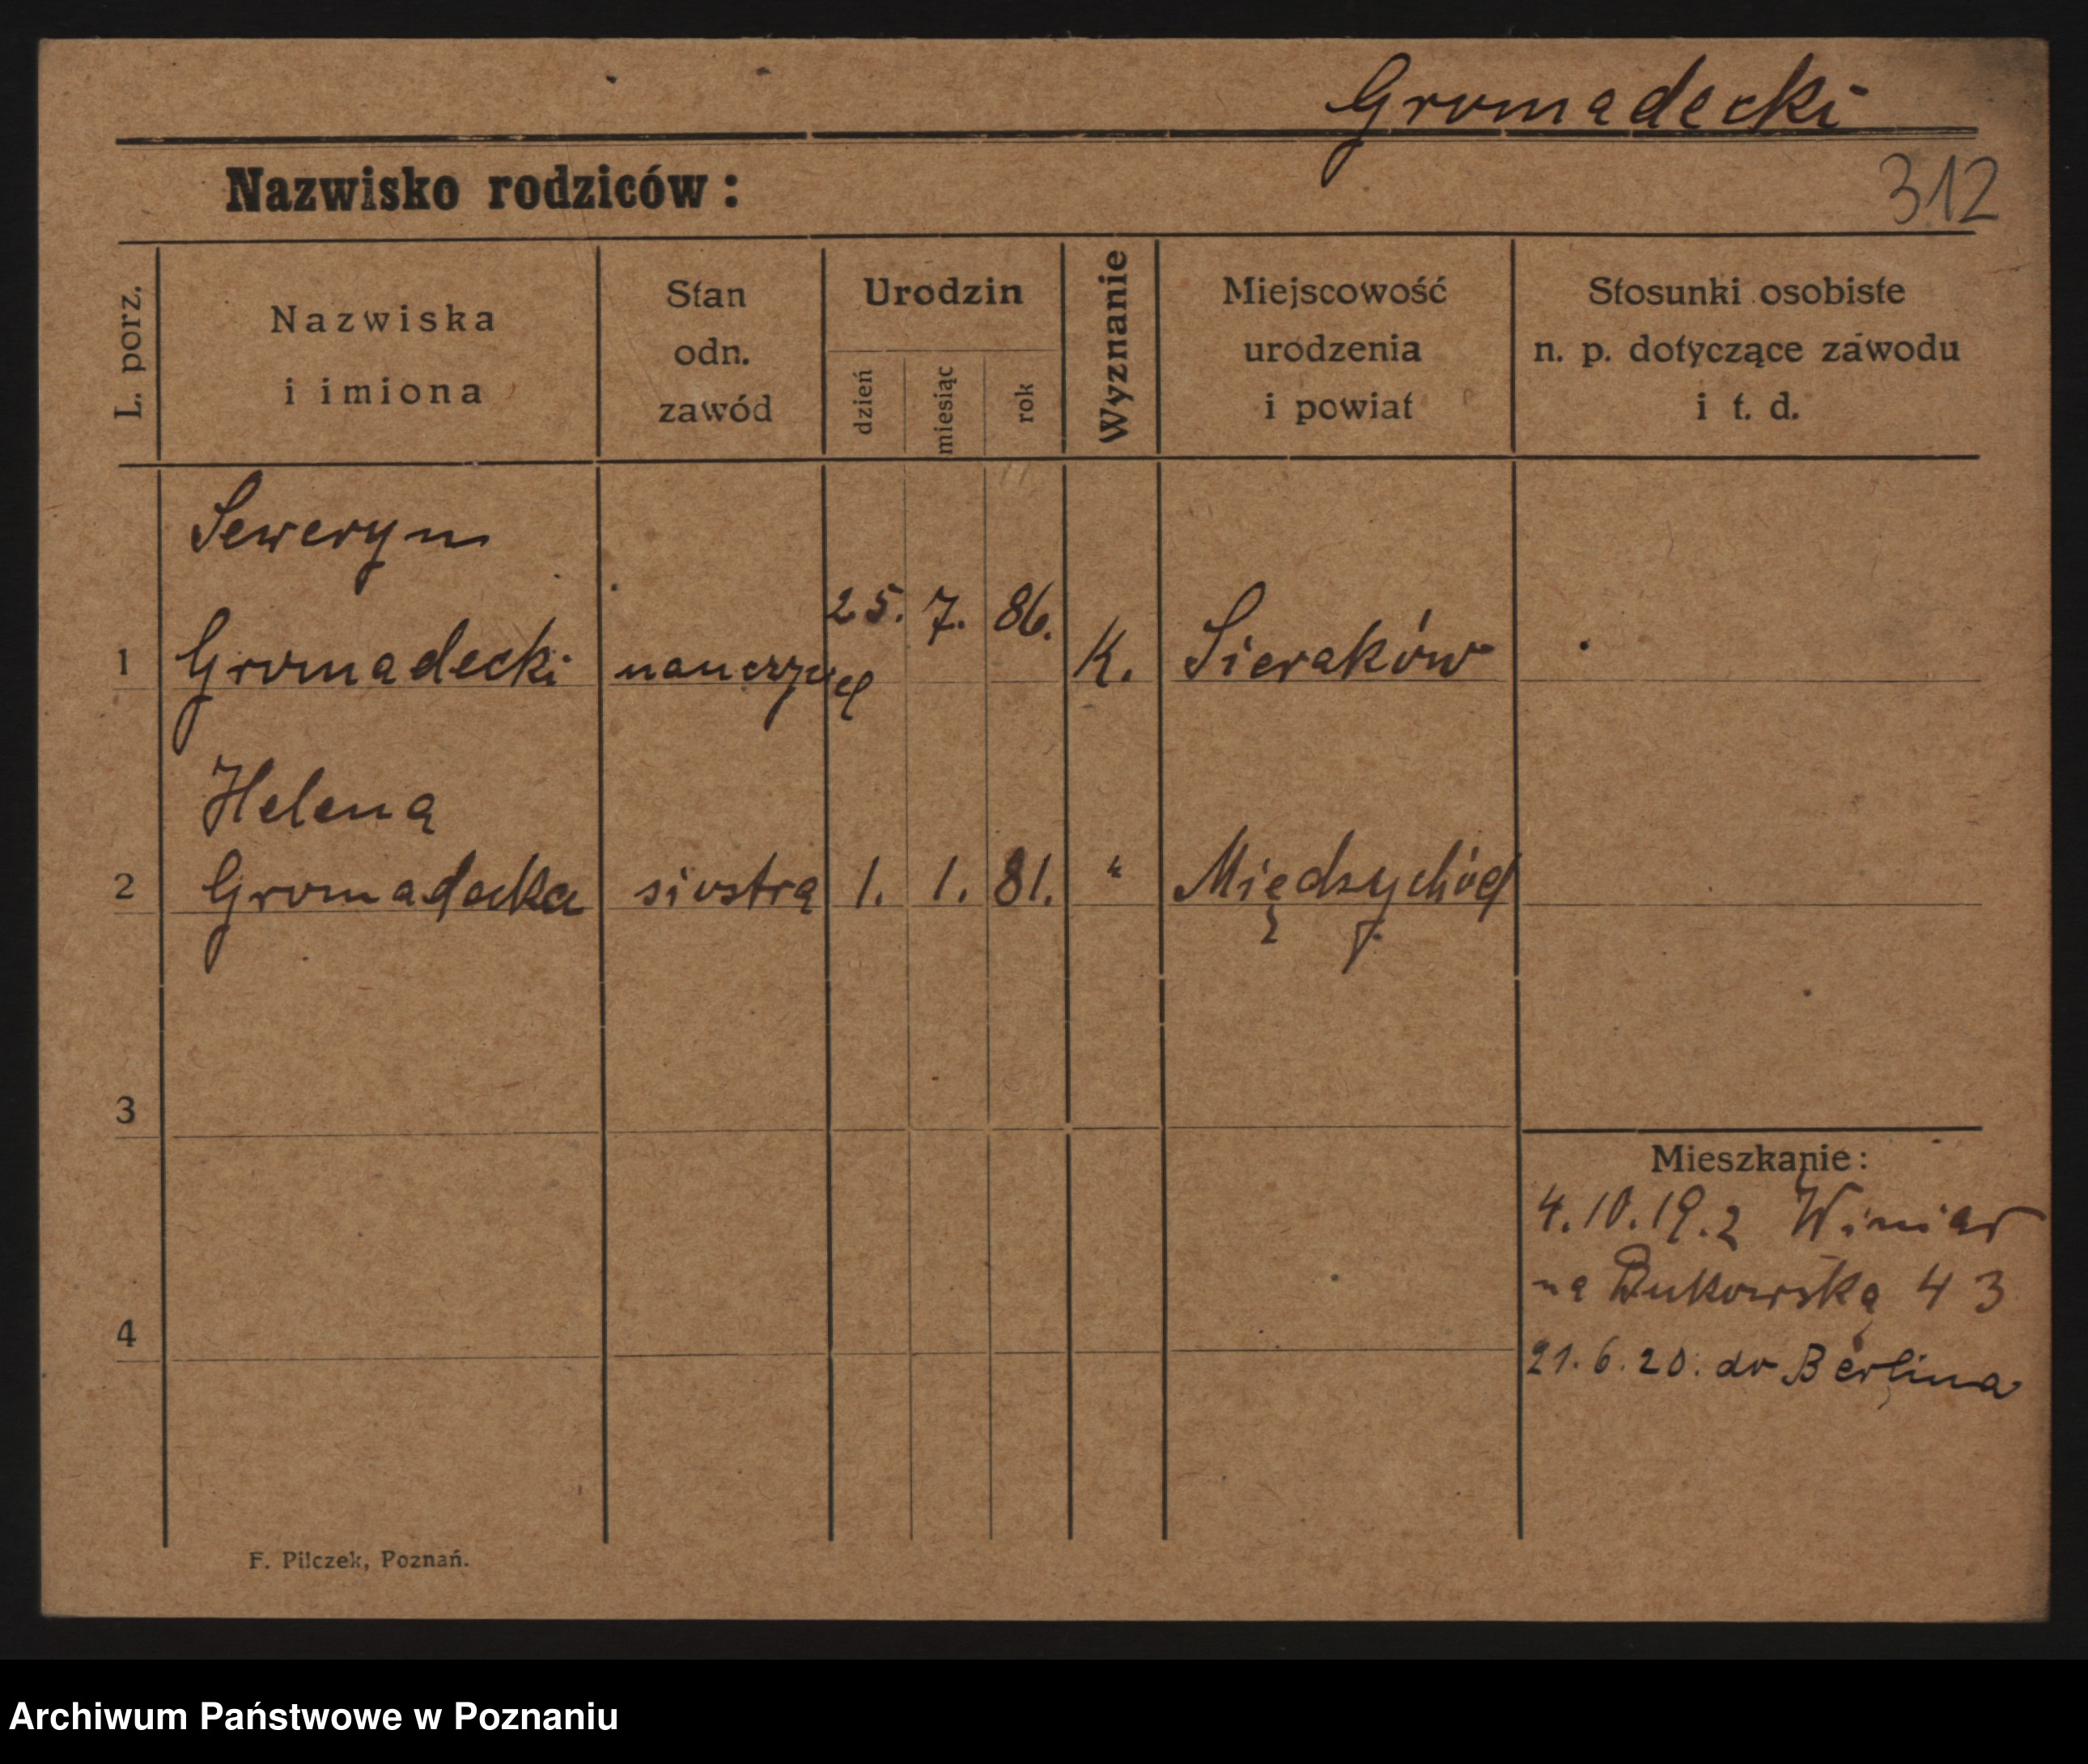 Gromadecki
Nazwisko rodziców:
312
L. porz.
Nazwiska
i imiona
Stan
odn.
zawód
Urodzin
dzień
miesiąc
rok
Wyznanie
Miejscowość
urodzenia
i powiat
Stosunki osobiste
n. p. dotyczące zawodu
i t. d.
Seweryn
1 Gromadecki nauczyciel 25. 7. 86. K. Sieraków
Helena
2 Gromadecka siostra 1. 1. 81. " Międzychód
3
Mieszkanie:
4.10.19. z Winiar
na Bukowską 43
4
21.6.20. do Berlina
F. Pilczek, Poznań.
Archiwum Państwowe w Poznaniu